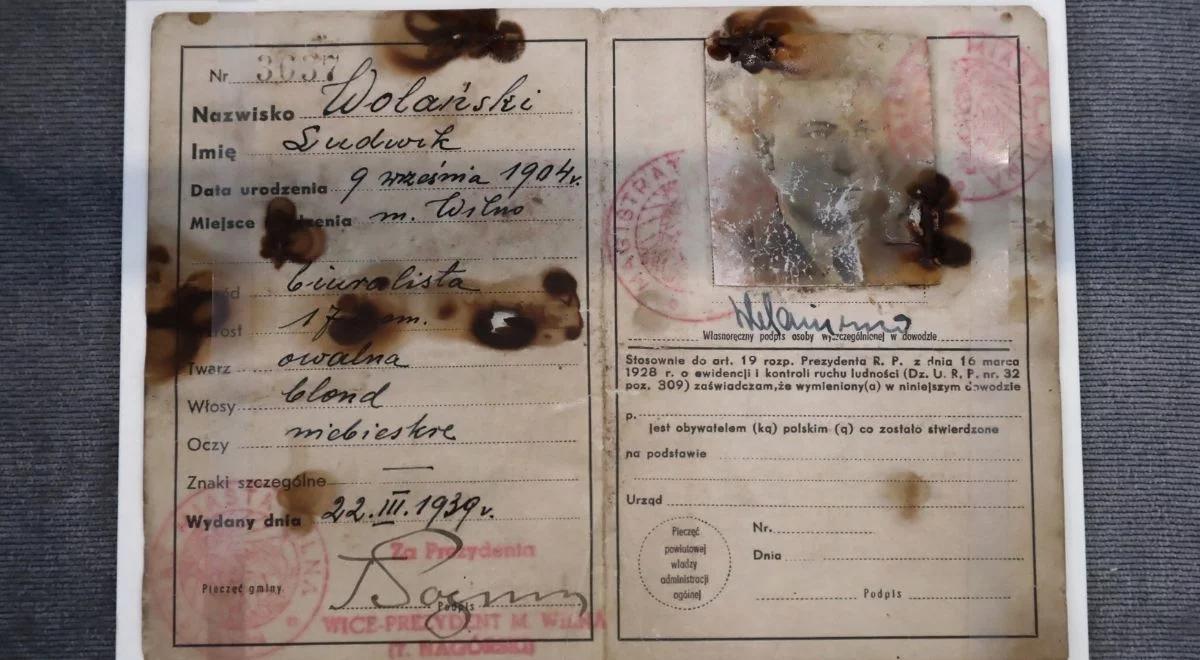 Nr 3037
Nazwisko Wolański
Imię Ludwik
Data urodzenia 9 września 1904r.
Miejsce m. Wilno
biuralista
owalna
Twarz
Włosy blond
Oczy niebieskie
Znaki szczególne —
Wydany dnia 22.III.1939r.
Za Prezydenta
Pieczęć gminy
Podpis
WICE-PREZYDENT M. WILNA
(T. NAGÓRSKI)
MAGISTRAT
Własnoręczny podpis osoby wyszczególnionej w dowodzie
Stosownie do art. 19 rozp. Prezydenta R. P. z dnia 16 marca
1928 r. o ewidencji i kontroli ruchu ludności (Dz. U. R. P. nr. 32
poz. 309) zaświadczam, że wymieniony(a) w niniejszym dowodzie
p.
jest obywatelem (ką) polskim (ą) co zostało stwierdzone
na podstawie
Urząd
Pieczęć
powiatowej
władzy
administracji
ogólnej
Nr.
Dnia
Podpis